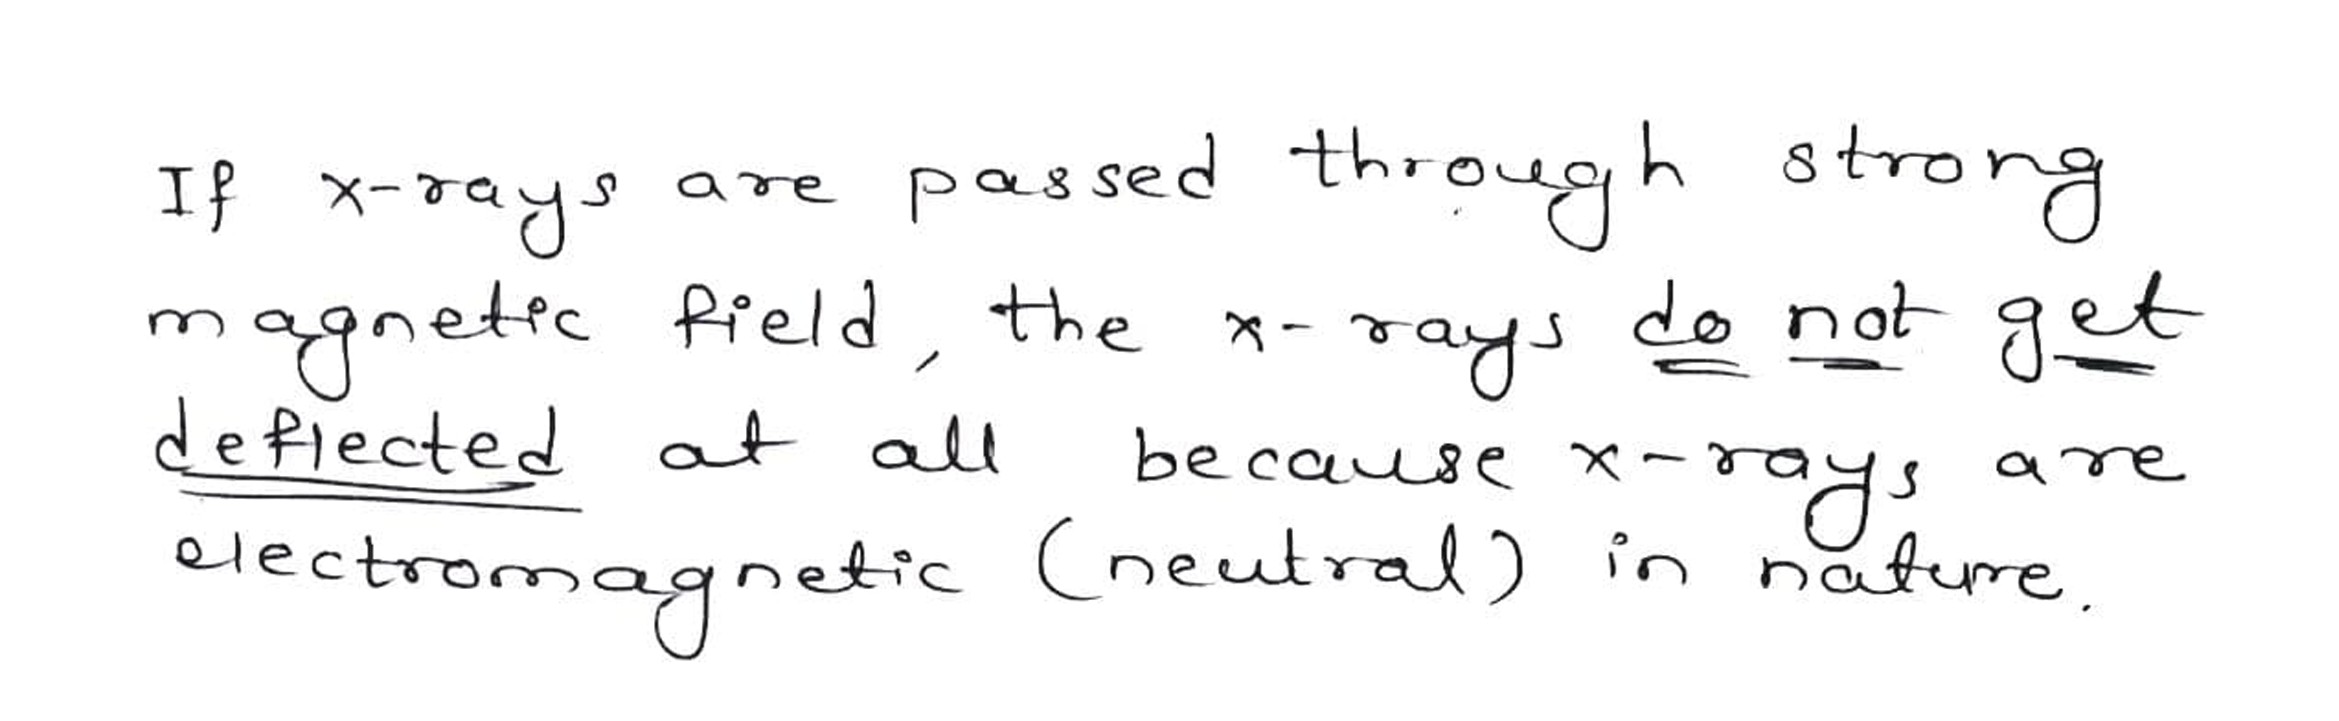 If x-rays are passed through strong
magnetic field, the x-rays do not get
deflected at all because x-rays are
electromagnetic (neutral) in nature.